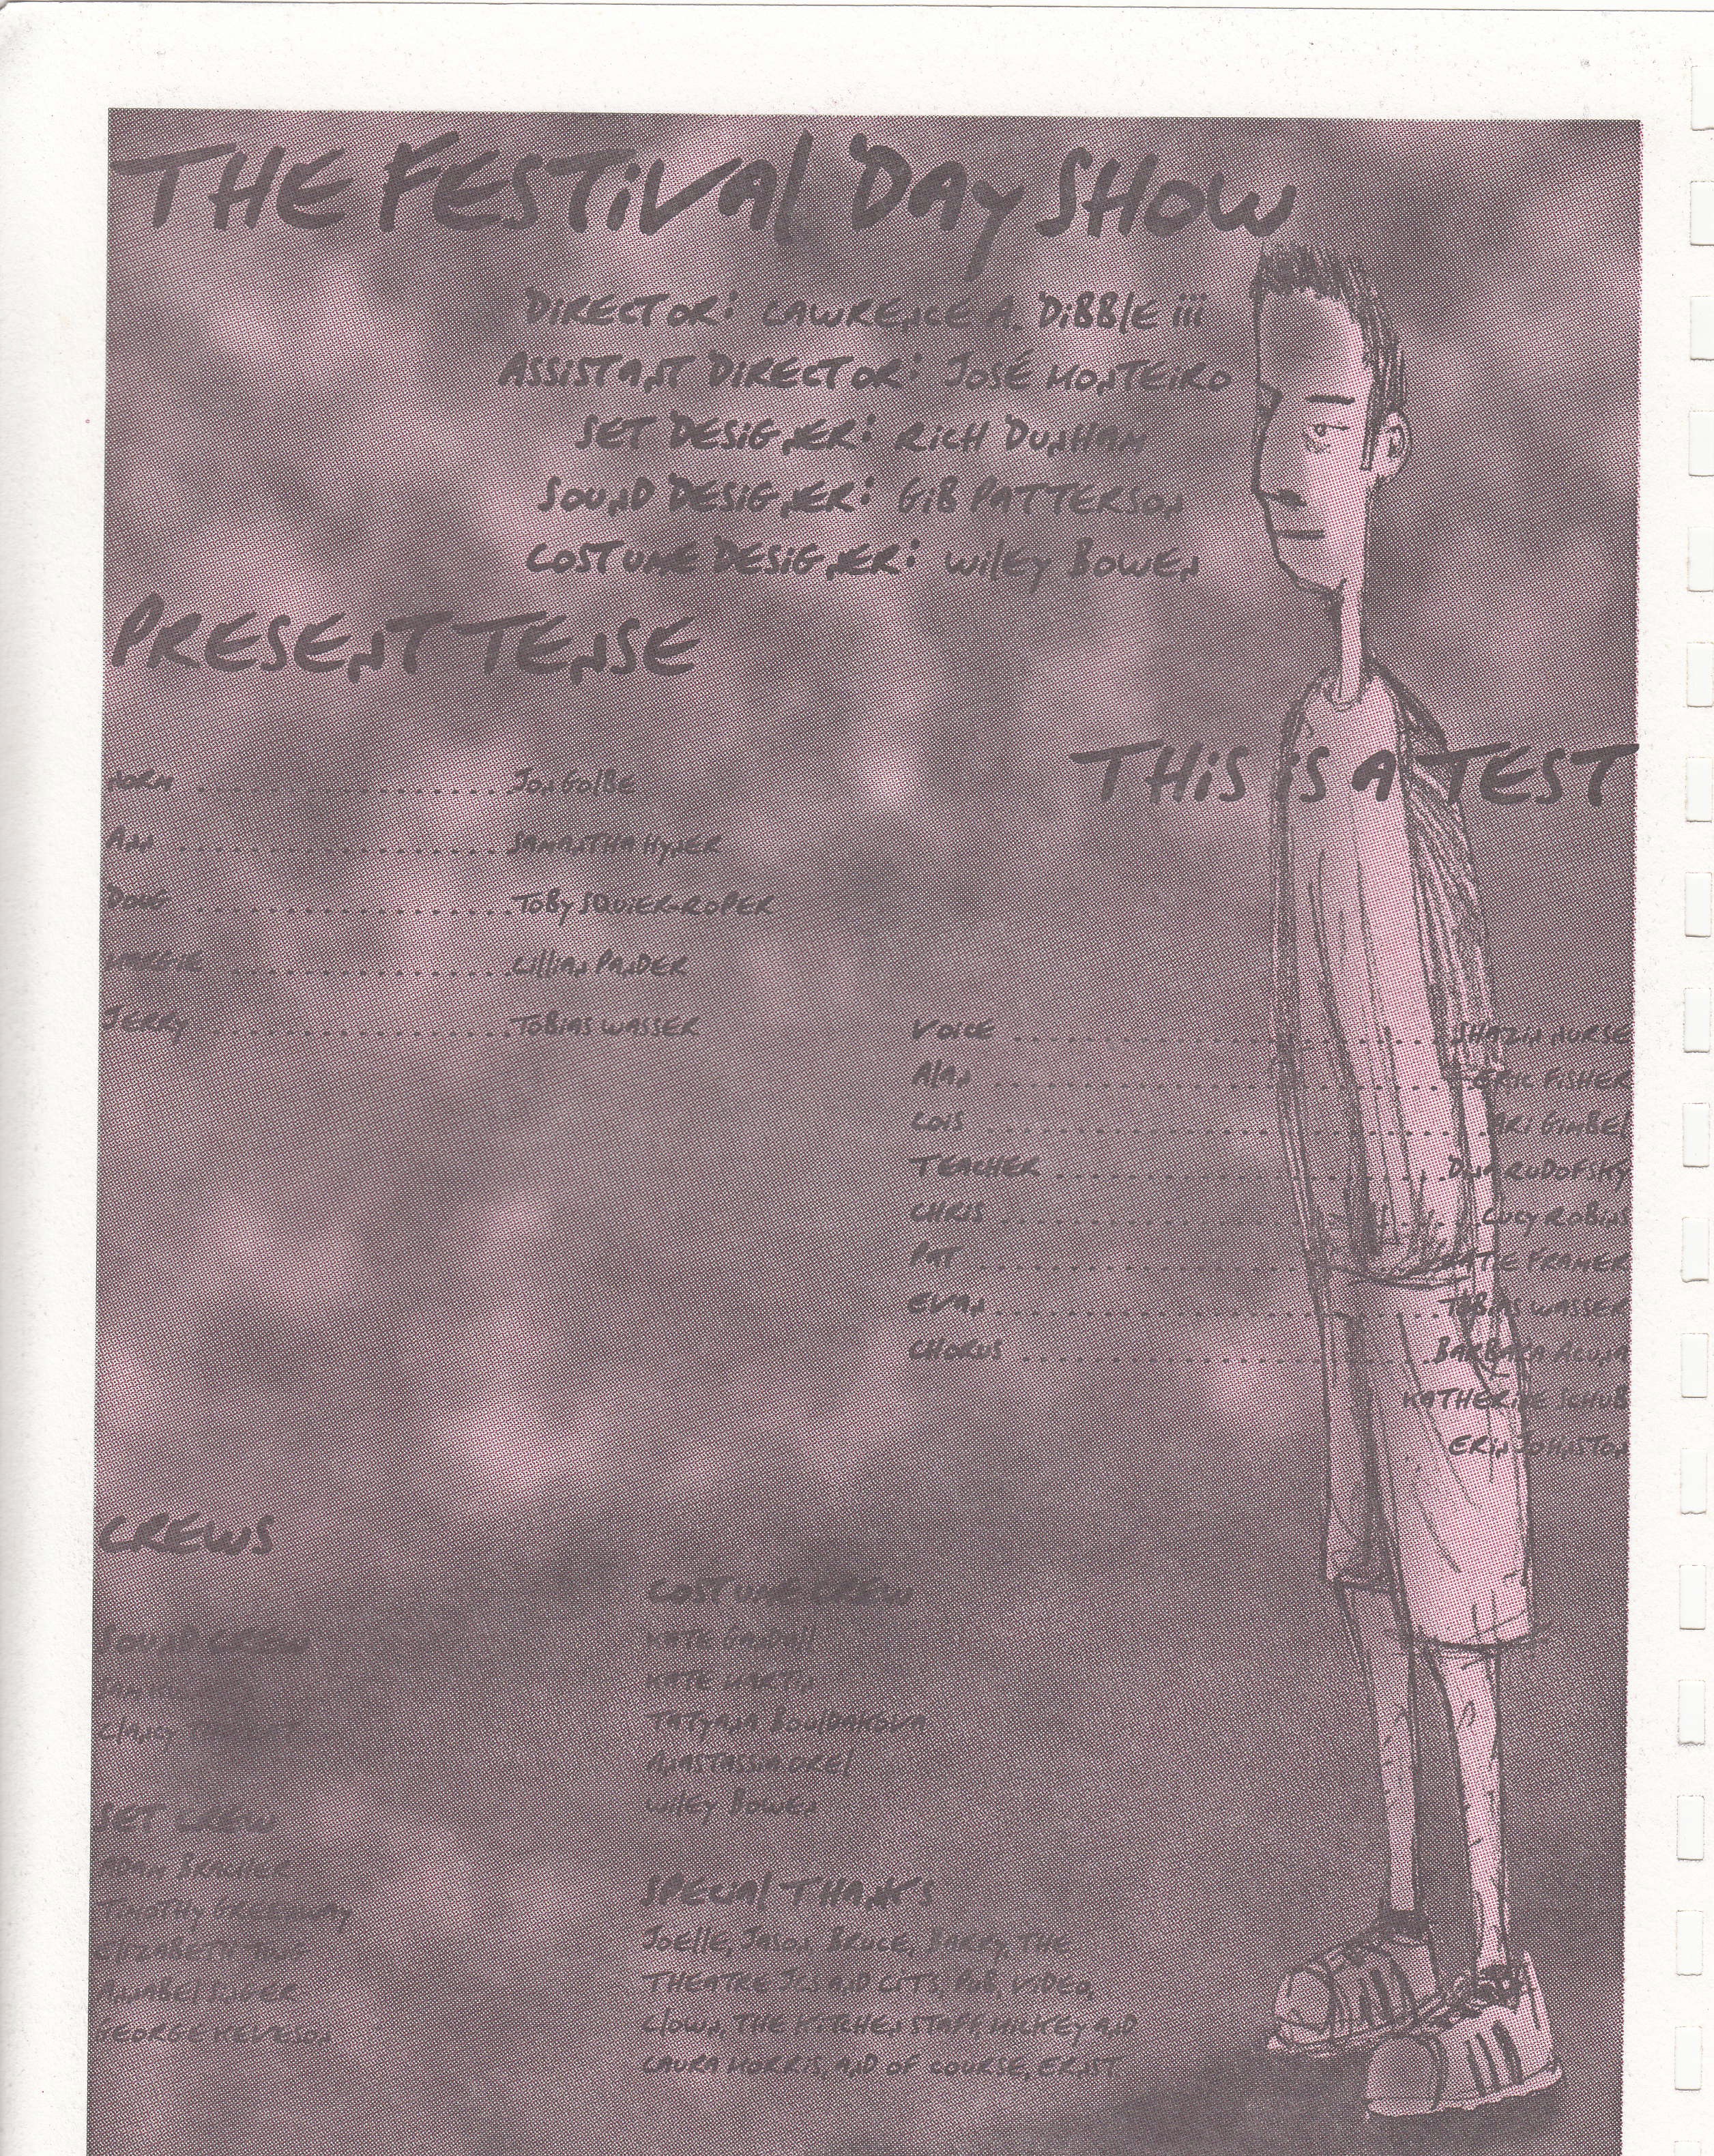 THE FESTIVAL DAY SHOW
DIRECTOR: LAWRENCE A. DIBBLE iii
ASSISTANT DIRECTOR: JOSÉ MONTEIRO
SET DESIGNER: RICH DUNHAM
SOUND DESIGNER: GIB PATTERSON
COSTUME DESIGNER: WILEY BOWEN
PRESENT TENSE
NORM ..................... JON GOLBE
ANN ..................... SAMANTHA HYNER
DOUG ..................... TOBY SQUIER-ROPER
MARGIE ..................... LILLIAN PANDER
JERRY ..................... TOBIAS WASSER
THIS IS A TEST
VOICE ..................... SHAZIN NURSE
ALAN ..................... ERIC FISHER
LOIS ..................... ARI GIMBEL
TEACHER ..................... RUDOFSKY
CHRIS ..................... LUCY ROBINS
PAT ..................... KATIE FRAMER
EVAN ..................... TOBIAS WASSER
CHORUS ..................... BARBARA ACUNA
KATHERINE SCHUB
ERIN JOHNSTON
CREWS
SOUND CREW
SAM
CLANCY
SET CREW
ADAM BRACHER
TIMOTHY GREENWAY
ELIZABETH TUNG
ANNABEL SINGER
GEORGE KEVESON
COSTUME CREW
KATE GANDALL
KATE MARTIN
TATYANA BOULDAKOVA
ANASTASSIA OREL
WILEY BOWEN
SPECIAL THANKS
JOELLE, JASON BRUCE, BARRY, THE
THEATRE JCS AND CITS, PUB, VIDEO,
CLOWN, THE KITCHEN STAFF, MICKEY AND
LAURA MORRIS, AND OF COURSE, ERNST.